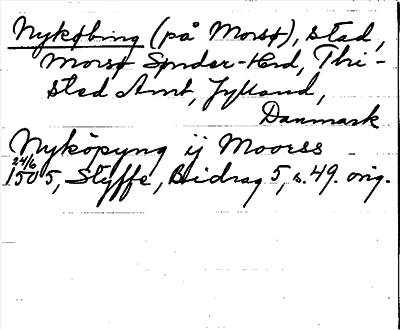 Nykøbing (på Morsø), stad,
Morsø Sønder-Herd, Thi-
sted Amt, Jylland,
Danmark
Nyköpyng ij Moorss
24/6
1505, Styffe, Bidrag 5, s. 49. orig.